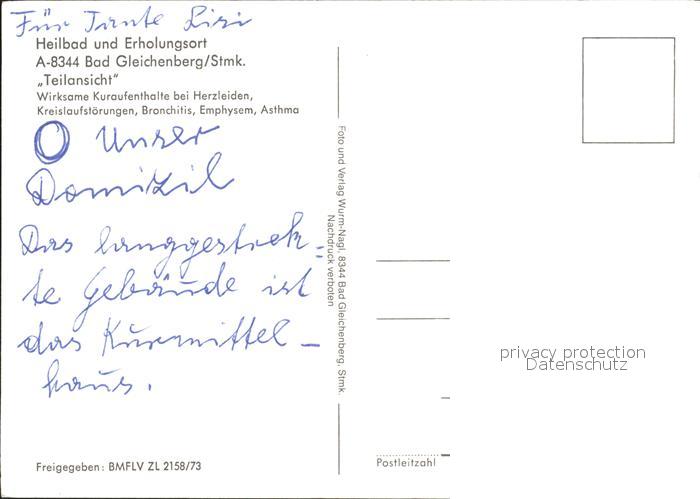 Für Tante Lisi
Heilbad und Erholungsort
A-8344 Bad Gleichenberg/Stmk.
„Teilansicht“
Wirksame Kuraufenthalte bei Herzleiden,
Kreislaufstörungen, Bronchitis, Emphysem, Asthma
O Unser
Domizil
Das langgestrek=
te Gebäude ist
das Kurmittel-
haus.
Freigegeben: BMFLV ZL 2158/73
Foto und Verlag Wurm-Nagl, 8344 Bad Gleichenberg, Stmk.
Nachdruck verboten
privacy protection
Datenschutz
Postleitzahl